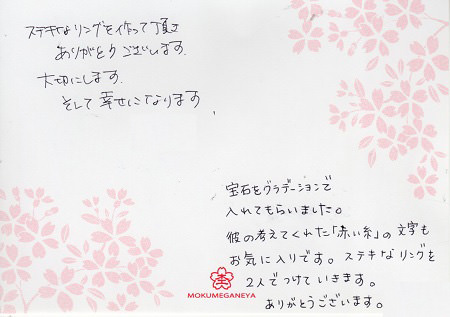 ステキなリングを作って頂き
ありがとうございます.
大切にします.
そして幸せになります
宝石をグラデーションで
入れてもらいました。
彼の考えてくれた「赤い糸」の文字も
お気に入りです。ステキなリングを
2人でつけていきます。
ありがとうございます。
MOKUMEGANEYA